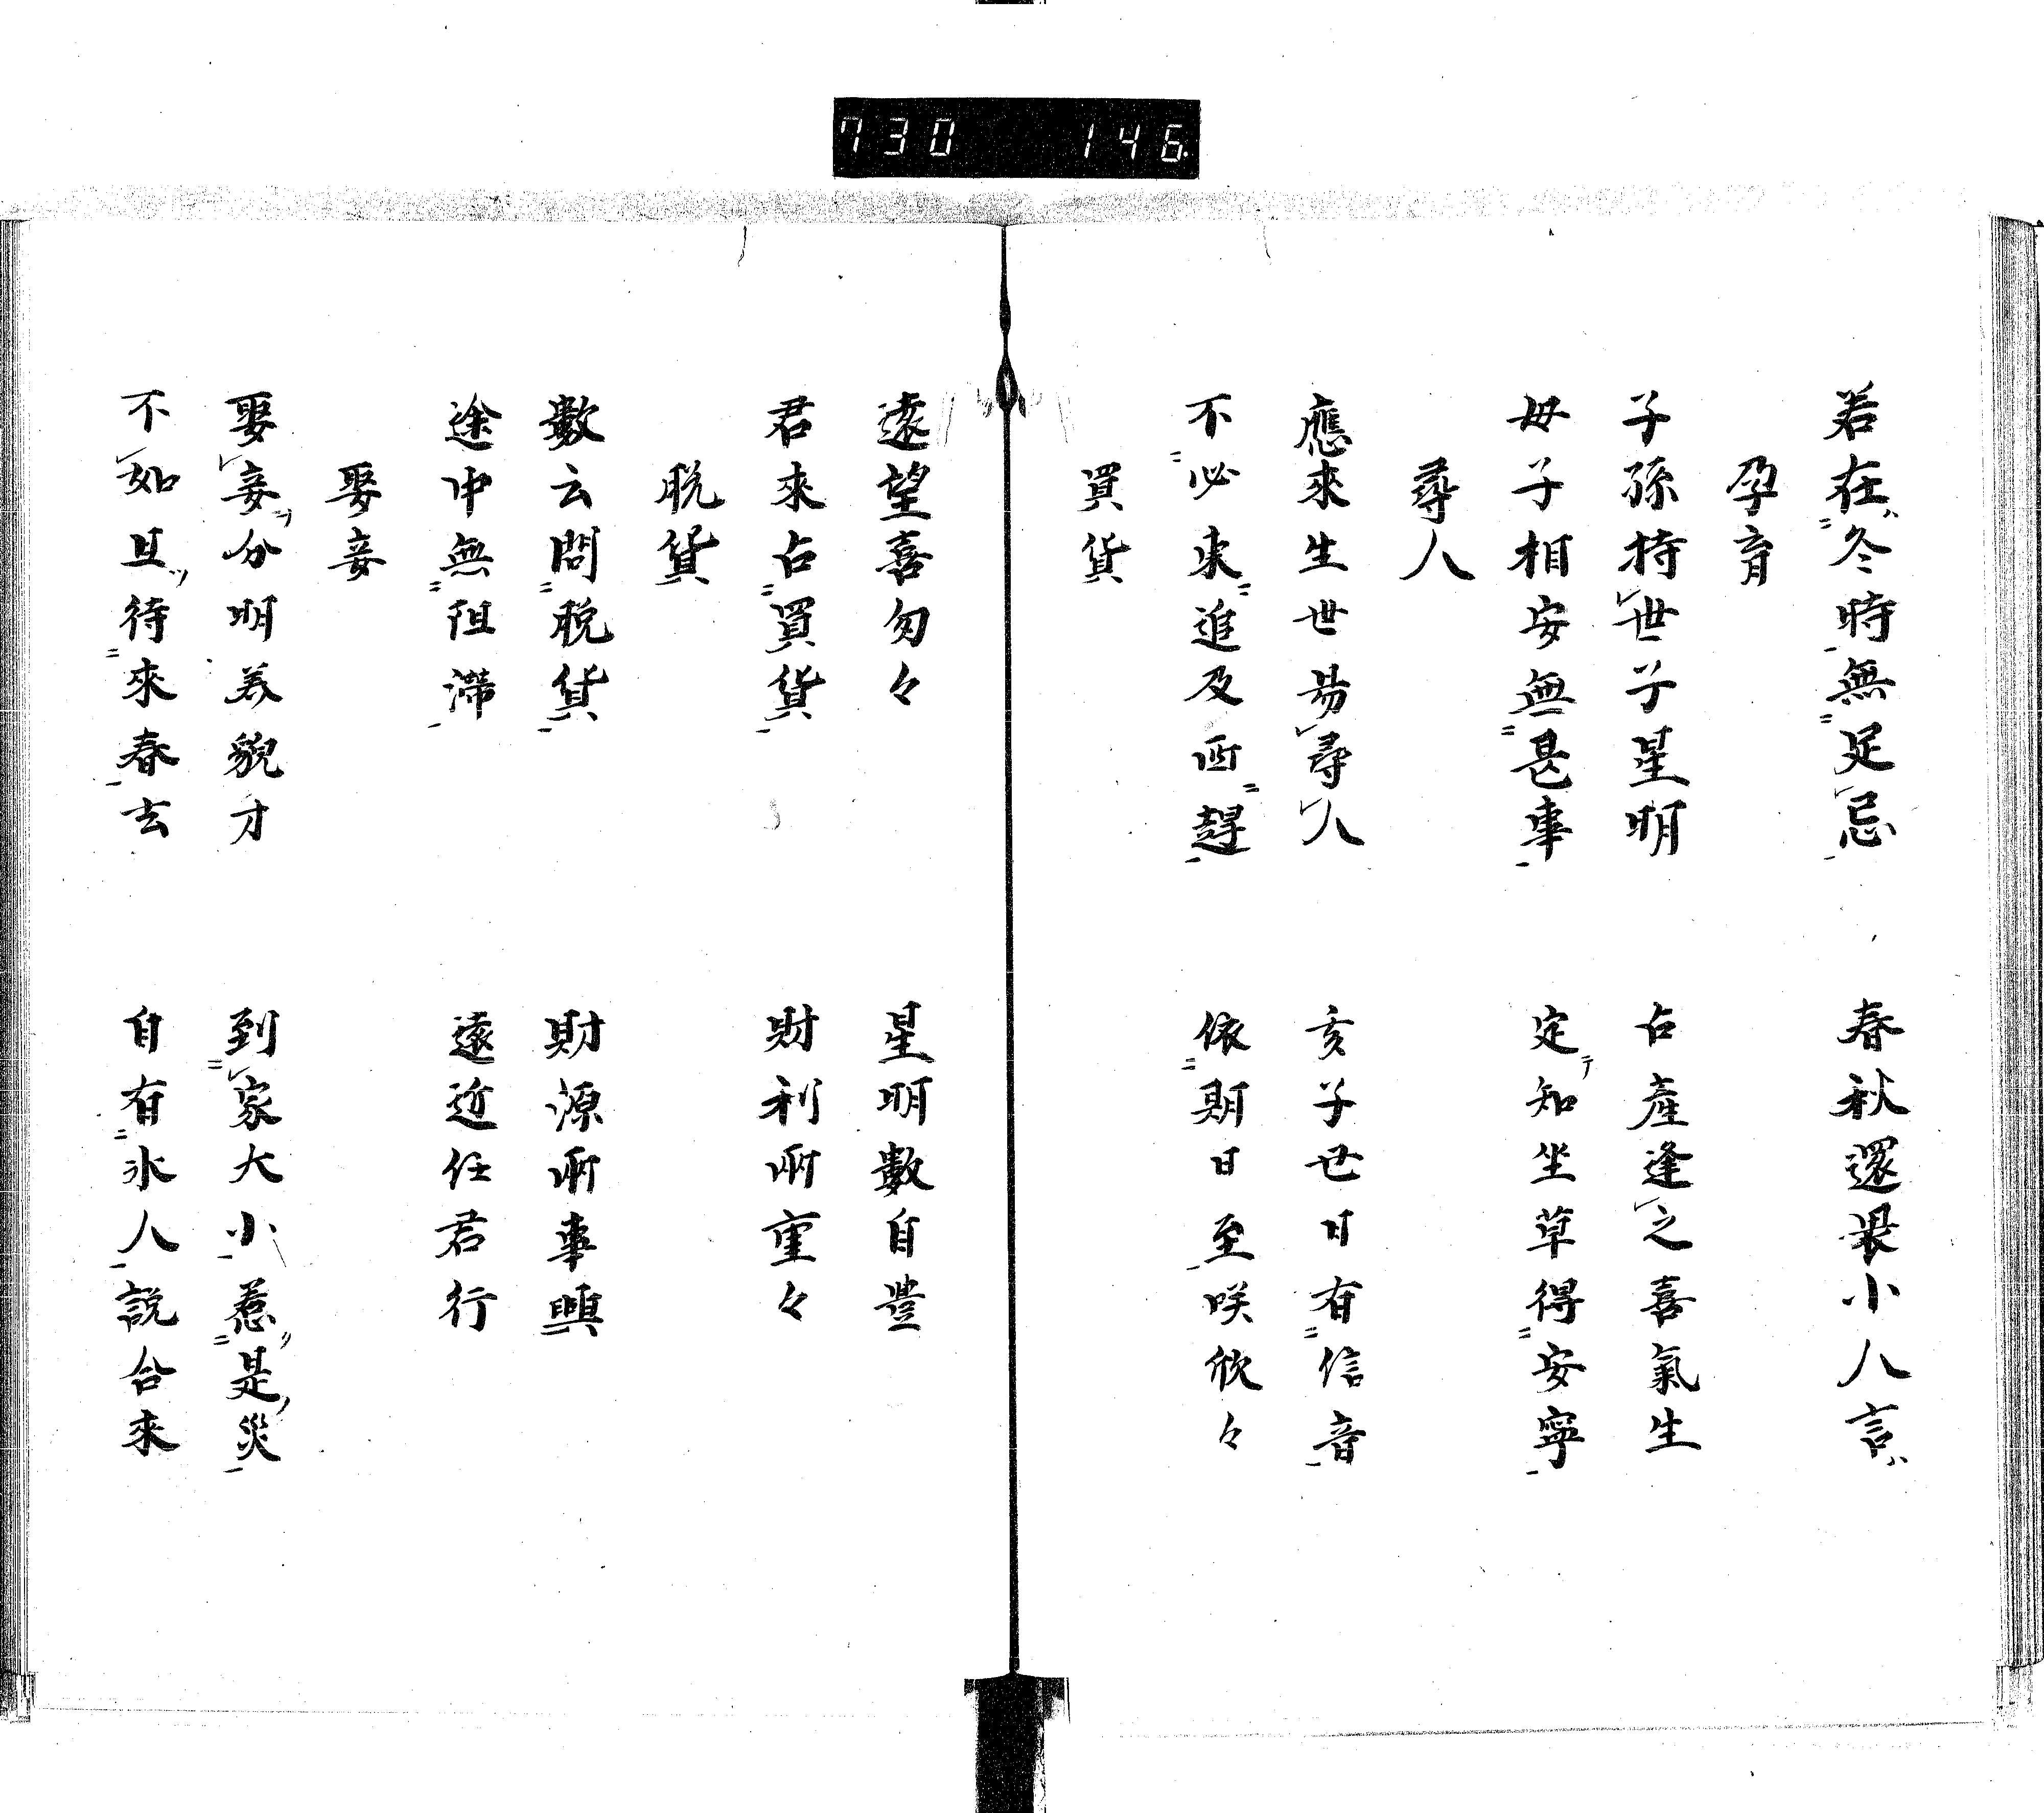 730 146
若在冬時無足忌 春秋還畏小人言
孕育
子孫持世子星明 占產逢之喜氣生
母子相安無甚事 定知坐草得安寧
尋人
應來生世易尋人 亥子世日有信音
不必東追及西趕 依期日至咲欣々
買貨
遠望喜匆々 星明數自豊
君來占買貨 財利兩重々
脱貨
數云問脱貨 財源兩事興
途中無阻滞 遠近任君行
娶妾
娶妾分明美貌才 到家大小惹是災
不如且待來春去 自有氷人說合來